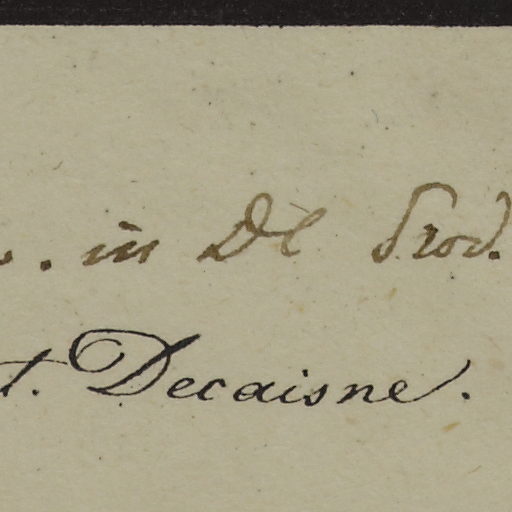 . in DC Prod.
t. Decaisne.